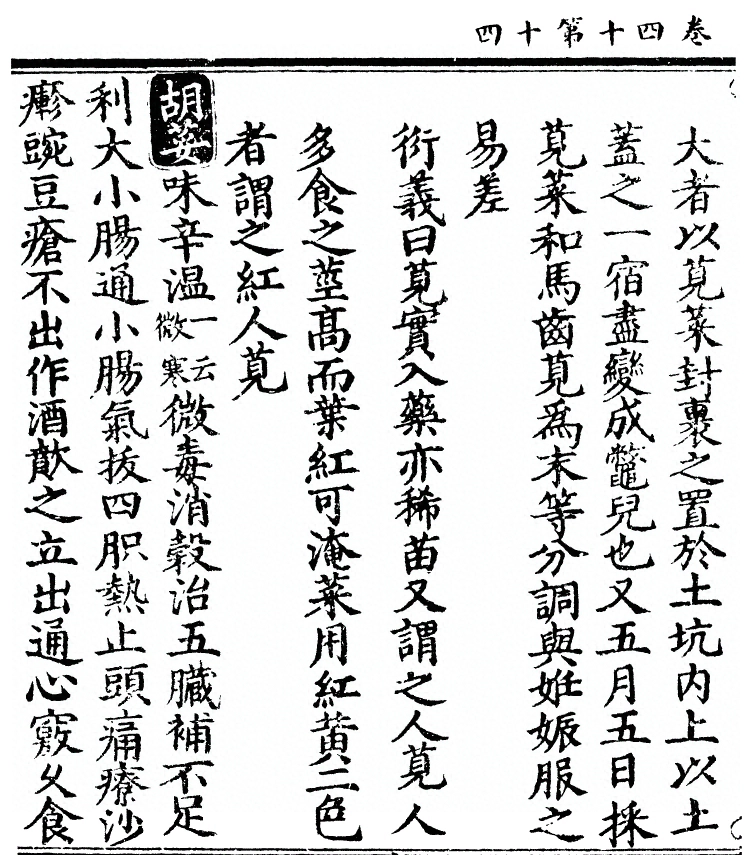 卷四十第十四
大者以莧菜封裹之置於土坑内上以土
蓋之一宿盡變成鼈兒也又五月五日採
莧菜和馬齒莧爲末等分調與姙娠服之
易差
衍義曰莧實入藥亦稀苗又謂之人莧人
多食之莖高而葉紅可淹菜用紅黄二色
者謂之紅人莧
胡荽味辛温一云微寒微毒消穀治五臓補不足
利大小腸通小腸氣拔四肢熱止頭痛療沙
瘮豌豆瘡不出作酒歕之立出通心竅久食